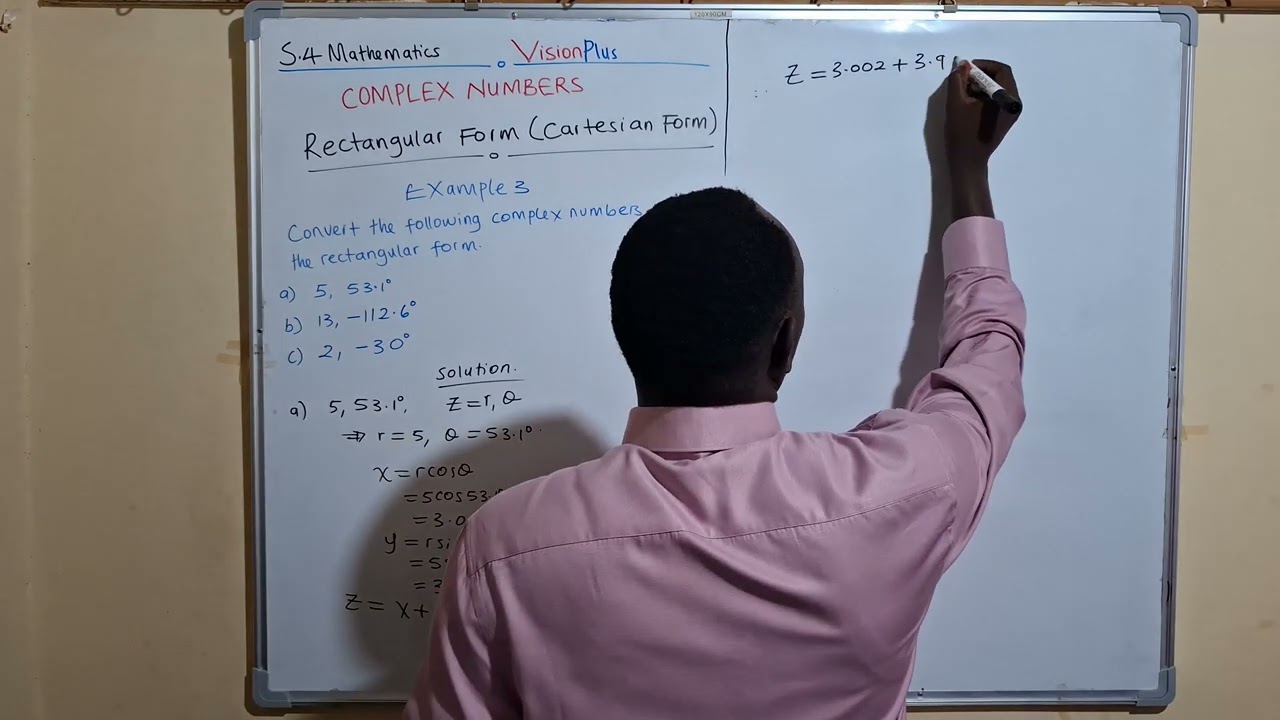 120X90CM
S.4 Mathematics VisionPlus
COMPLEX NUMBERS
Rectangular Form (Cartesian Form)
Example 3
Convert the following complex numbers
the rectangular form.
a) 5, 53.1°
b) 13, -112.6°
c) 2, -30°
Solution.
a) 5, 53.1°, Z = r, θ
⇒ r = 5, θ = 53.1°.
x = rcosθ
= 5cos53.
= 3.0
y = rsi
= 5
= 3
Z = x+
∴ Z = 3.002 + 3.9